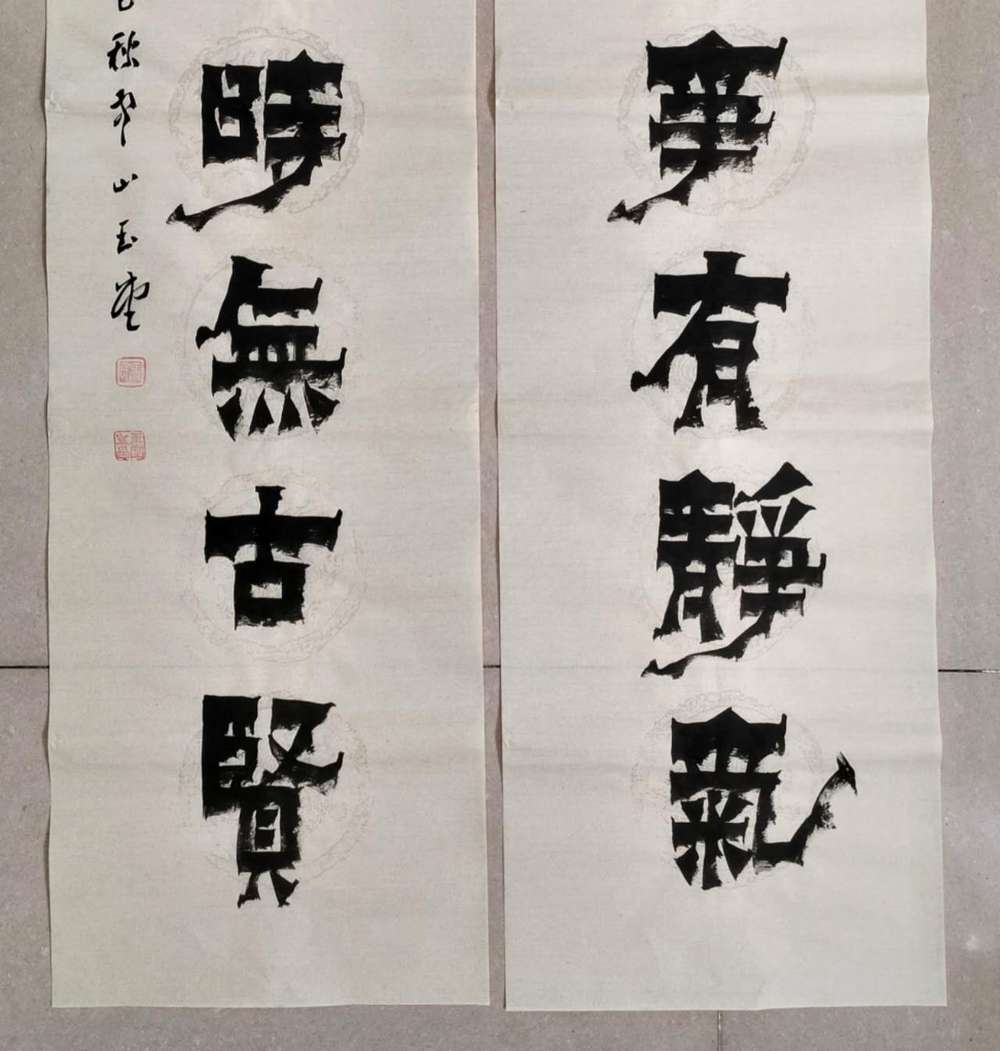 事有靜氣
時無古賢
秋山玉堂